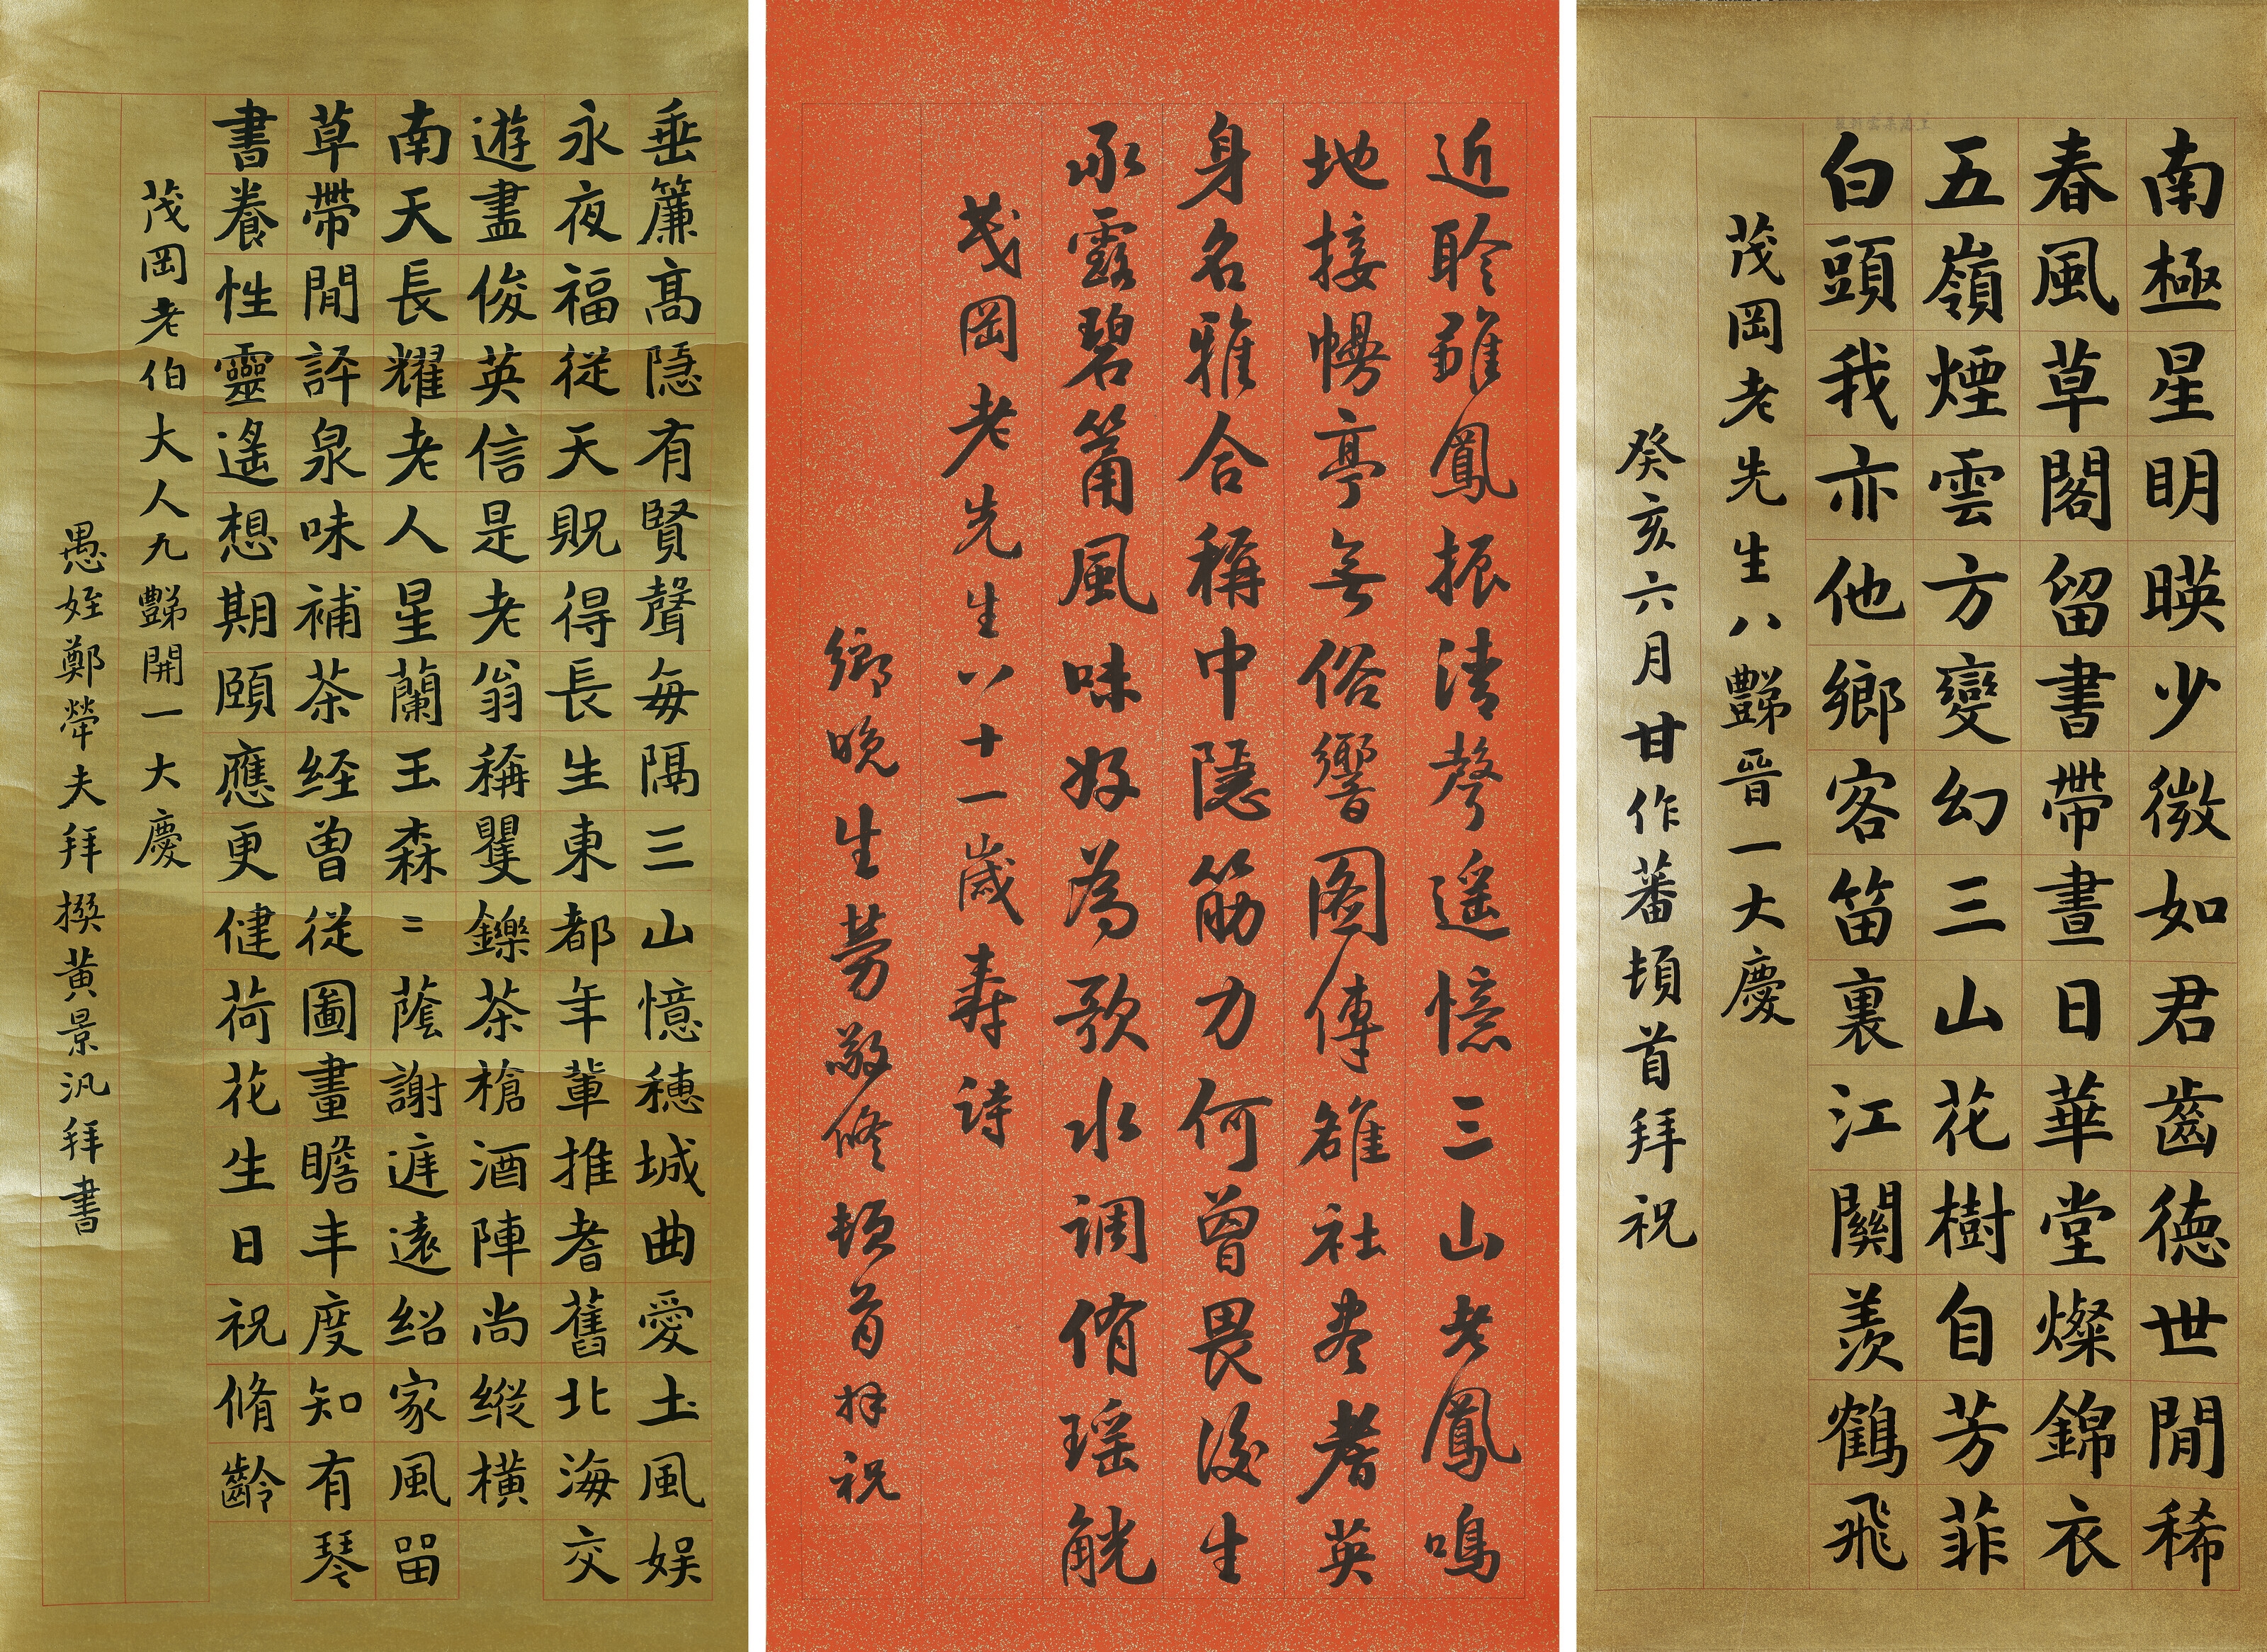 南極星明暎少微如君齒德世閒稀
春風草閣留書帶晝日華堂燦錦衣
五嶺煙雲方變幻三山花樹自芳菲
白頭我亦他鄉客笛裏江關羨鶴飛
茂岡老先生八豑晉一大慶
癸亥六月甘作蕃頓首拜祝
近聆雛鳳振清聲遥憶三山老鳳鳴
地接幔亭無俗響圖傳雒社盡耆英
身名雅合稱中隱筋力何曾畏後生
承露碧筩風味好為歌水調侑瑶觥
茂岡老先生八十一歲壽詩
鄉晚生勞敬修頓首拜祝
垂簾高隱有賢聲每隔三山憶穗城曲愛土風娱
永夜福從天貺得長生東都年輩推耆舊北海交
遊盡俊英信是老翁稱矍鑠茶槍酒陣尚縱橫
南天長耀老人星蘭玉森〻蔭謝庭遠紹家風留
草帶閒評泉味補茶経曾從圖畫瞻丰度知有琴
書養性靈遙想期頤應更健荷花生日祝脩齡
茂岡老伯大人九豑開一大慶
愚姪鄭犖夫拜撰黃景汎拜書